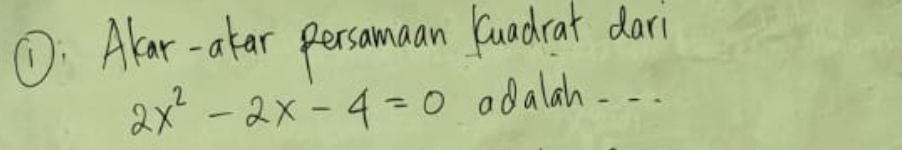 ①. Akar-akar persamaan kuadrat dari
2x² - 2x - 4 = 0 adalah ----